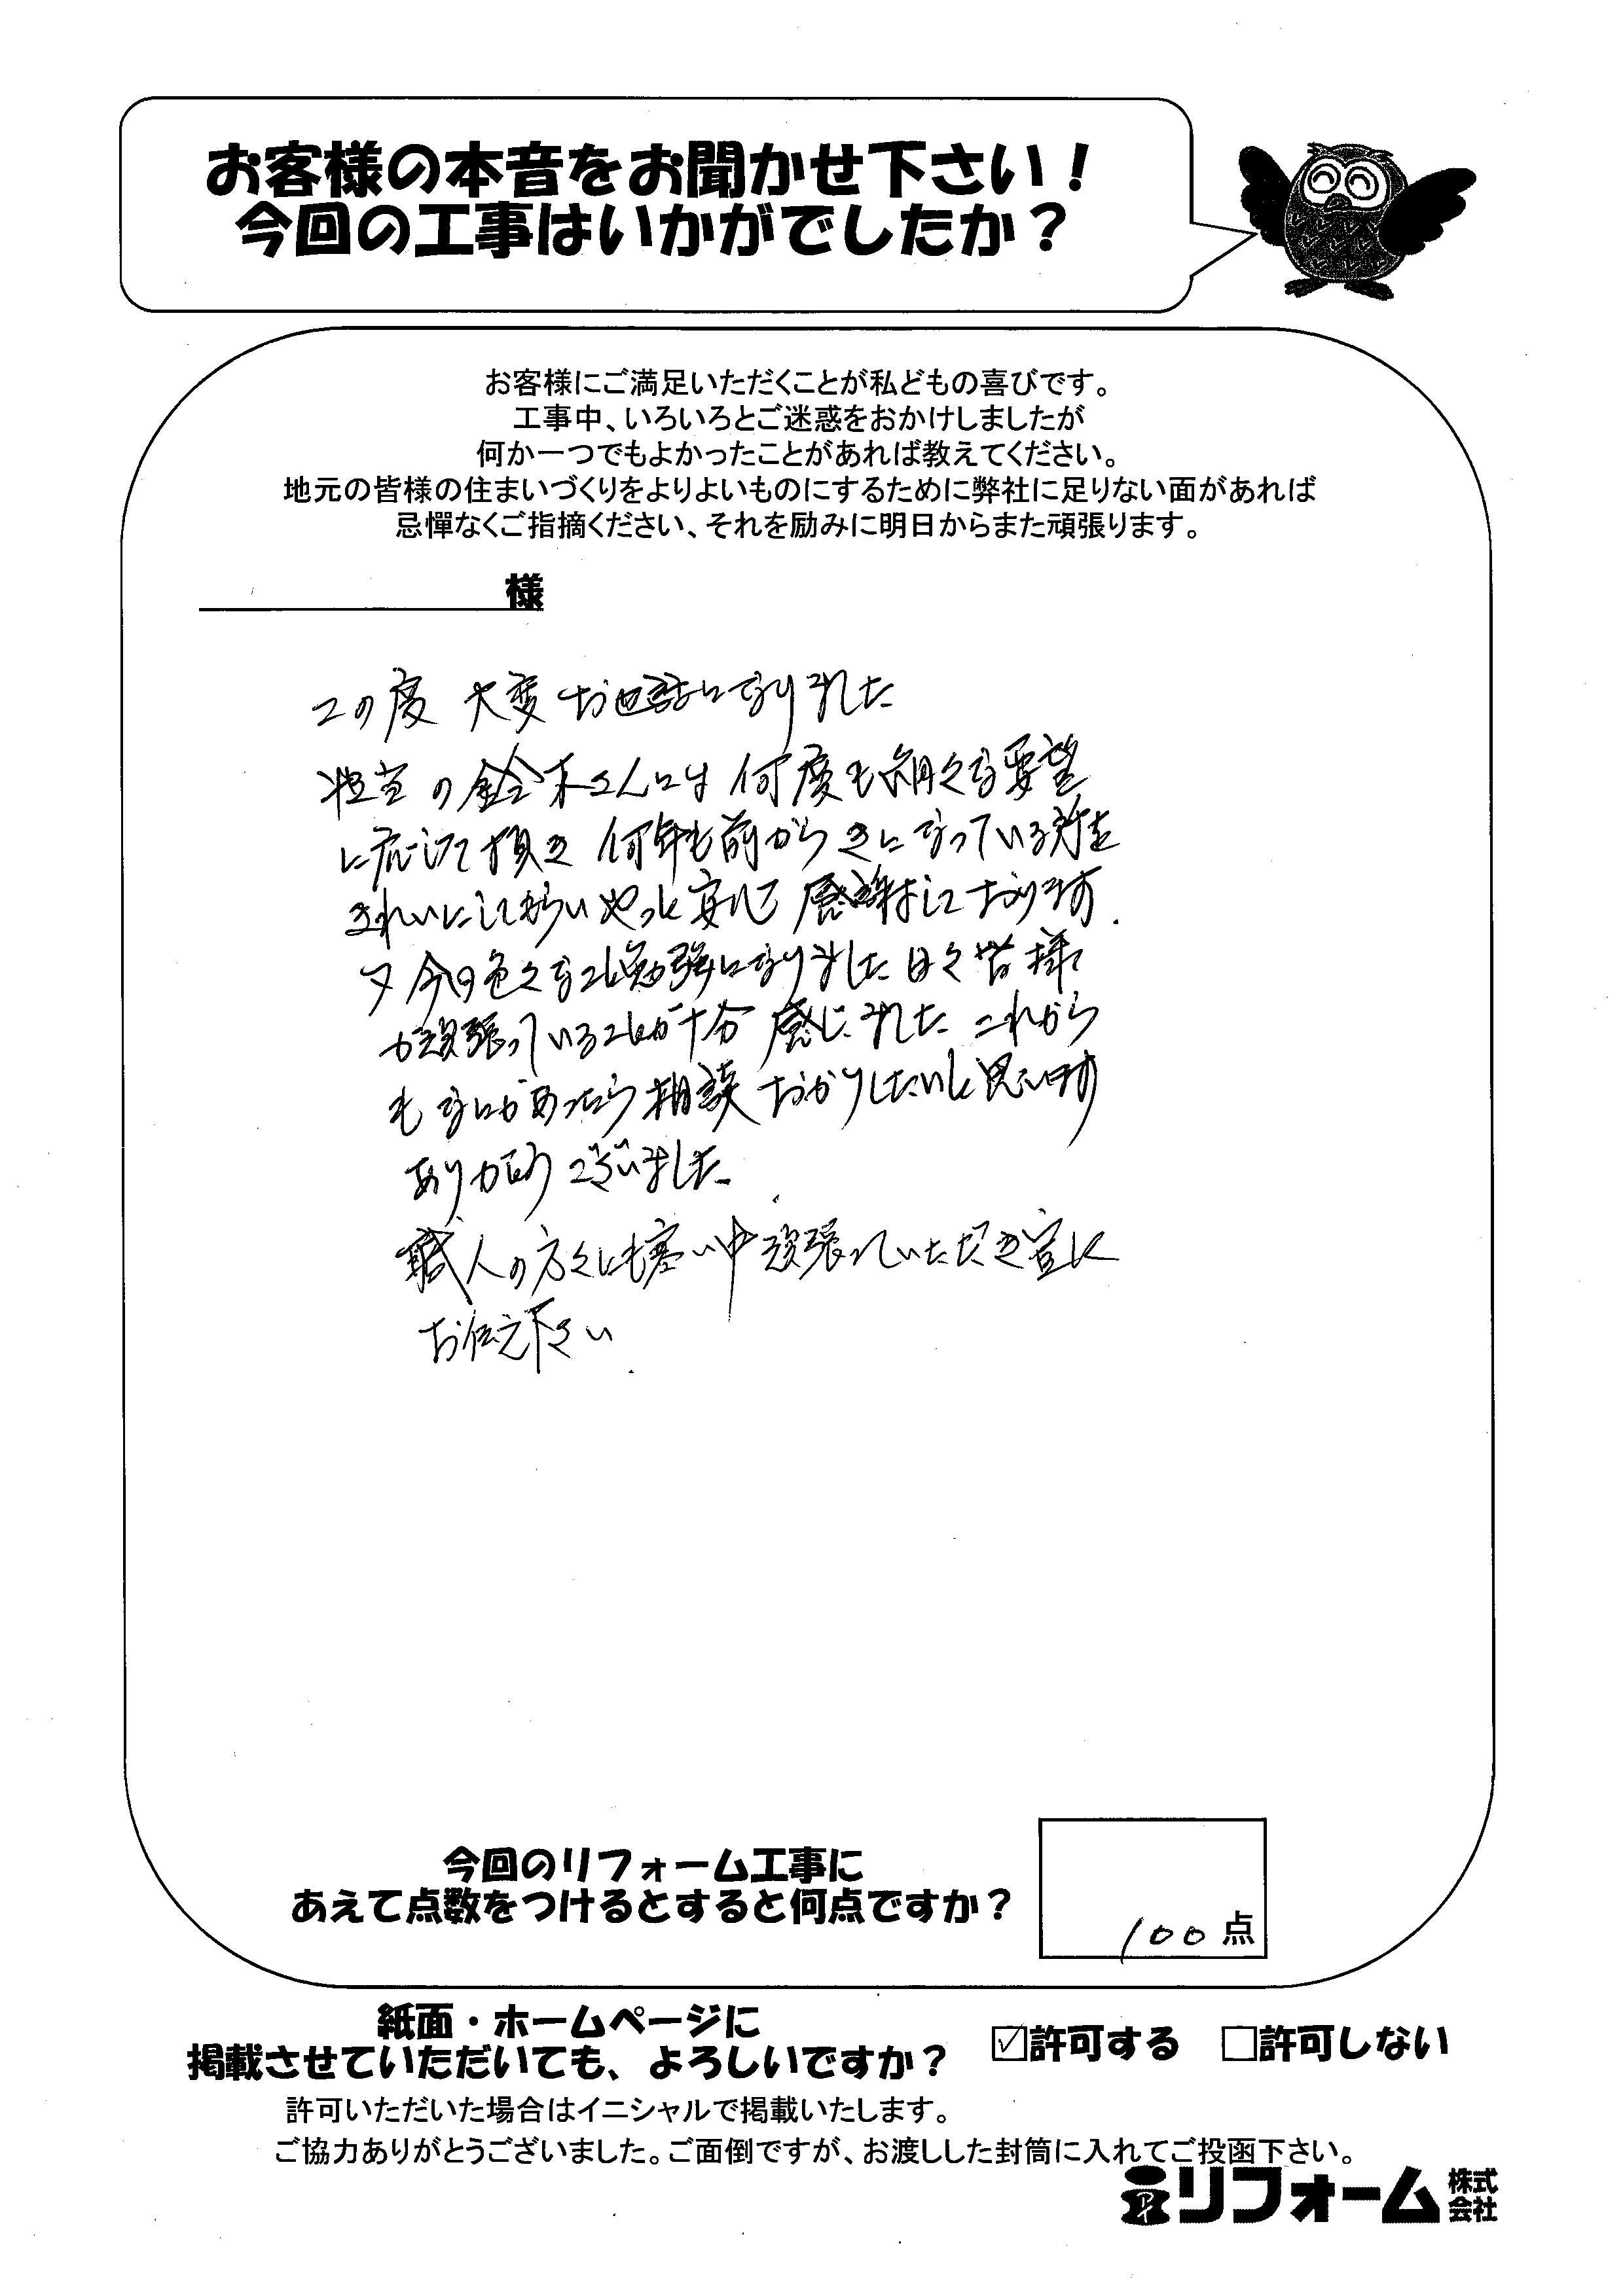 お客様の本音をお聞かせ下さい！
今回の工事はいかがでしたか？
お客様にご満足いただくことが私どもの喜びです。
工事中、いろいろとご迷惑をおかけしましたが
何か一つでもよかったことがあれば教えてください。
地元の皆様の住まいづくりをよりよいものにするために弊社に足りない面があれば
忌憚なくご指摘ください、それを励みに明日からまた頑張ります。
様
この度 大変お世話になりました
担当の鈴木さんには 何度も細々な要望
に応じて頂き 何年も前からきになっている所を
きれいにしてもらいやっと安心 感謝しております.
又 今回色々なこと勉強になりました 日々皆様
が頑張っていることが十分 感じました これから
もなにかあったら相談 おかりしたいと思います
ありがとうございました
職人の方々にも寒い中 頑張っていただき宜しく
お伝え下さい
今回のリフォーム工事に
あえて点数をつけるとすると何点ですか？
100点
紙面・ホームページに
掲載させていただいても、よろしいですか？
☑許可する □許可しない
許可いただいた場合はイニシャルで掲載いたします。
ご協力ありがとうございました。ご面倒ですが、お渡しした封筒に入れてご投函下さい。
リフォーム株式会社